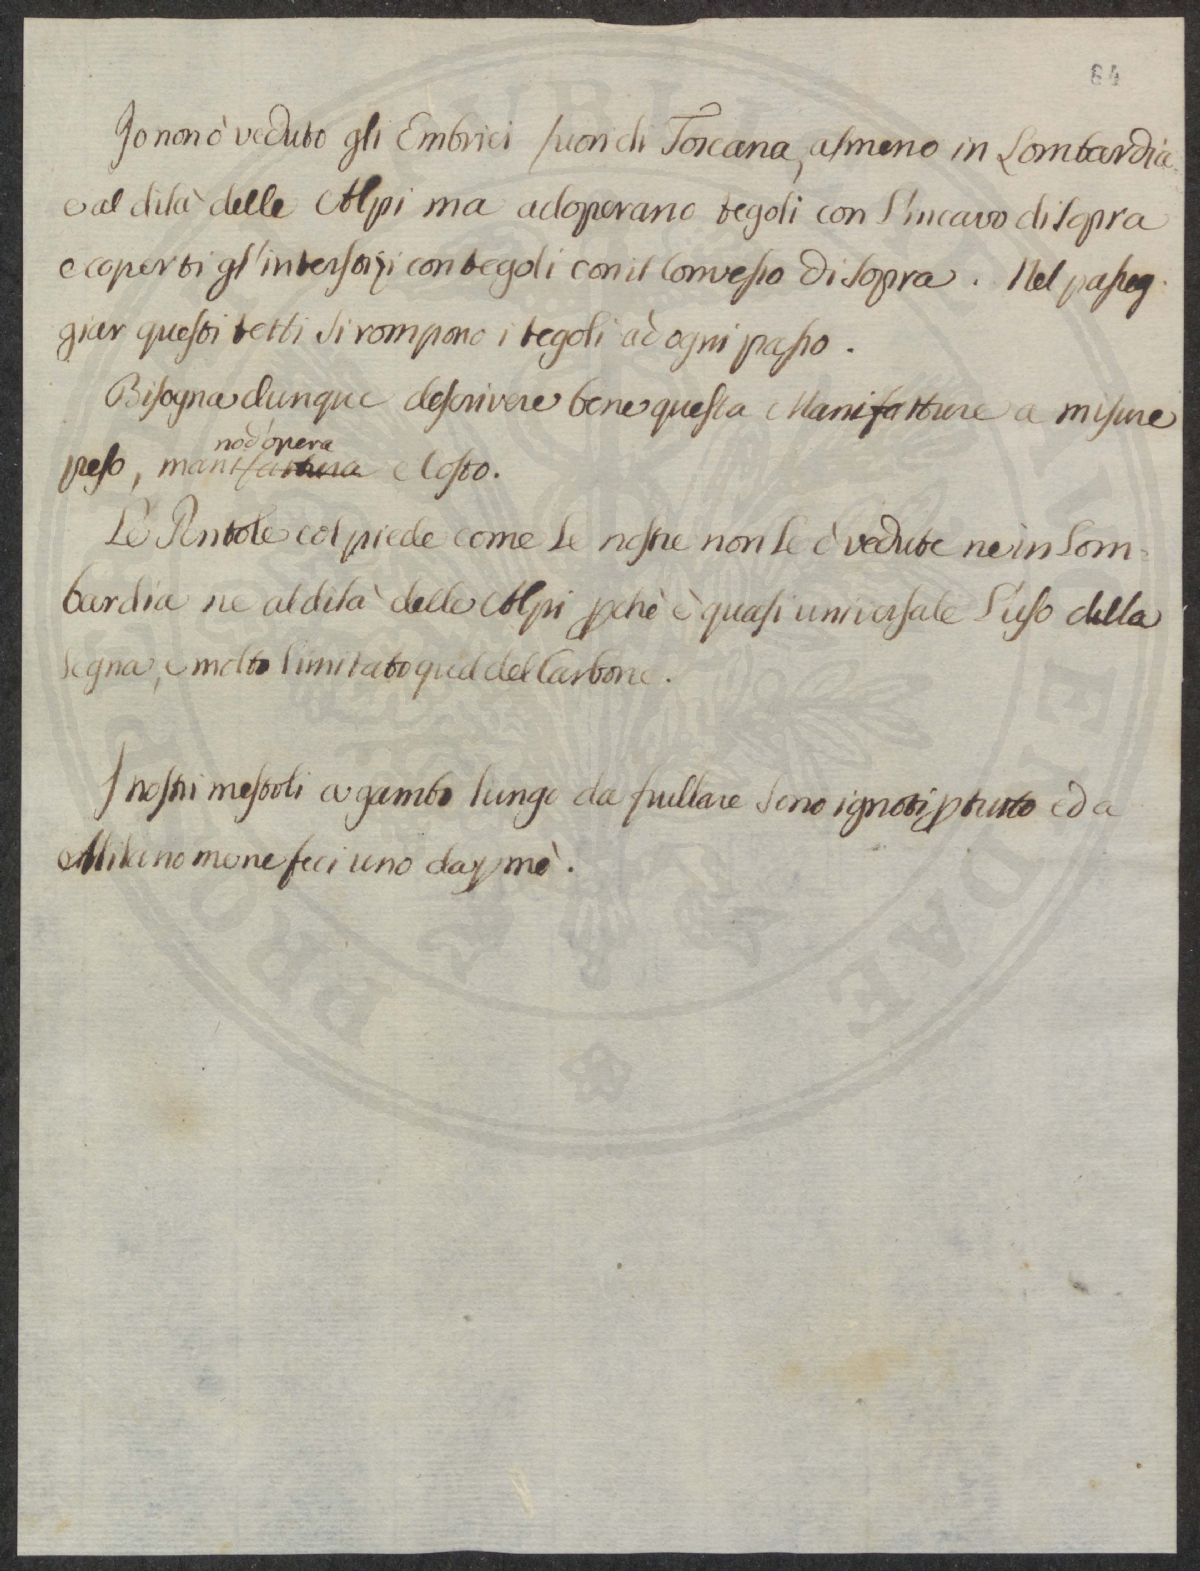 64
Io non ò veduto gli Embrici fuori di Toscana, almeno in Lombardia
e al di là delle Alpi ma adoperano tegoli con l'incavo di sopra
e coperti gl'interstizi con tegoli con il Convesso di sopra. Nel passeg-
giar questi tetti si rompono i tegoli ad ogni passo.
Bisogna dunque descrivere bene questa Manifatture a misure
nod'opera
peso, manifattura e Costo.
Le Pentole col piede come le nostre non le ò vedute ne in Lom=
bardia ne al di là delle Alpi pchè è quasi universale l'uso della
Legna, e molto limitato quel del Carbone.
I nostri mestoli a gambo lungo da frullare sono ignoti p tutto ed a
Milano me ne feci uno da p me.